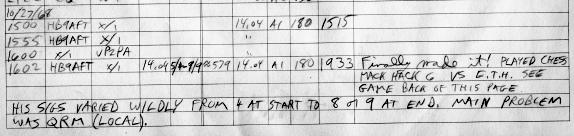 10/27/68
1500 HB9AFT X/1 14.04 A1 180 1515
1555 HB9AFT X/1 "
1600 X/1 UP2PA "
1602 HB9AFT X/1 14.04 579 14.04 A1 180 1933 Finally made it! PLAYED CHESS
MACK HACK 6 VS E.T.H. SEE
GAME BACK OF THIS PAGE
HIS SIGS VARIED WILDLY FROM 4 AT START TO 8 OR 9 AT END. MAIN PROBLEM
WAS QRM (LOCAL).